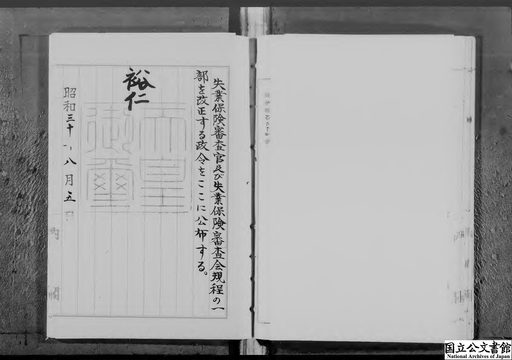 失業保険審査官及び失業保険審査会規程の一
部を改正する政令をここに公布する。
裕仁
天皇
御璽
昭和三十 八月五日
国立公文書館
National Archives of Japan